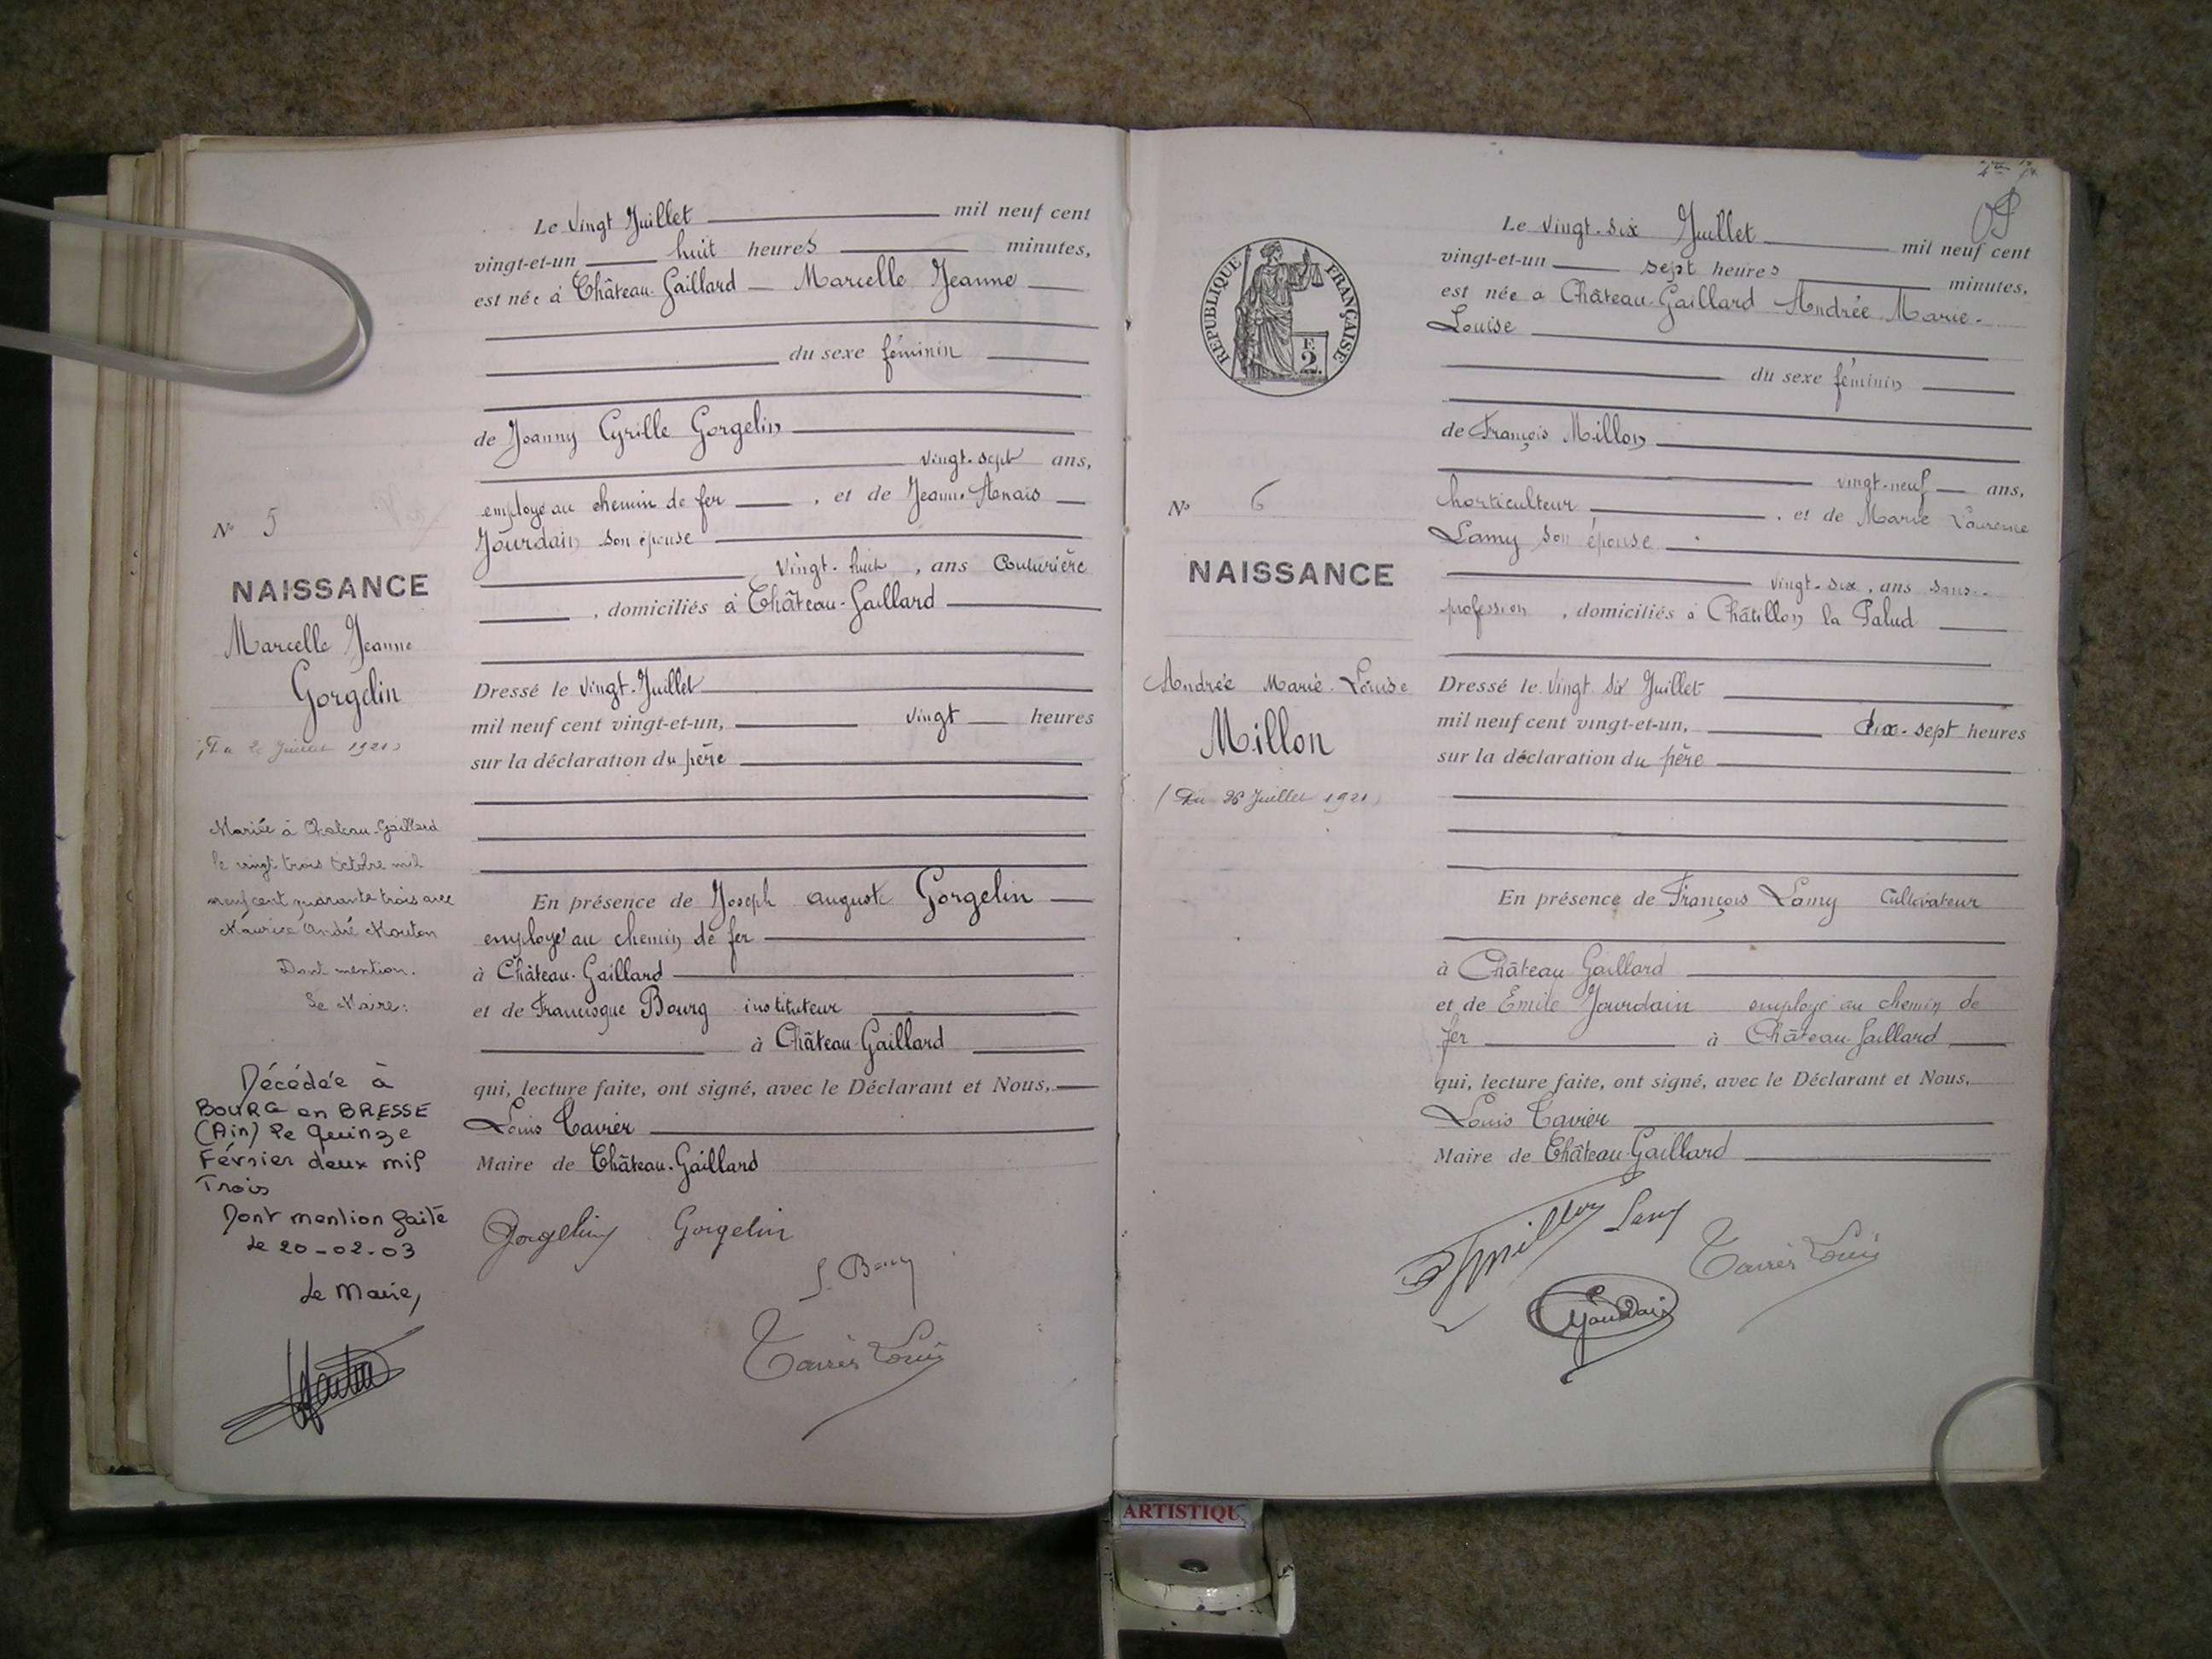 Le vingt Juillet mil neuf cent
vingt-et-un huit heures minutes,
est née à Château-Gaillard Marcelle Jeanne
du sexe féminin
de Joanny Cyrille Gorgelin
vingt-sept ans,
employé au chemin de fer , et de Jeanne Anaïs
Jourdain son épouse
vingt-huit , ans Couturière
, domiciliés à Château-Gaillard
Dressé le vingt-Juillet
mil neuf cent vingt-et-un, vingt heures
sur la déclaration du père
En présence de Joseph auguste Gorgelin
employé au chemin de fer
à Château-Gaillard
et de Francisque Bourg instituteur
à Château-Gaillard
qui, lecture faite, ont signé, avec le Déclarant et Nous,
Louis Tavier
Maire de Château-Gaillard
Gorgelin Gorgelin
Tavier Louis
N° 5
NAISSANCE
Marcelle Jeanne
Gorgelin
Juillet 1921)
Mariée à Chateau-Gaillard
le vingt trois Octobre mil
neuf cent quarante trois avec
Maurice André Mouton
Dont mention.
Le Maire:
Décédée à
BOURG en BRESSE
(Ain) le Quinze
Février deux mil
Trois
Dont mention faite
le 20-02-03
Le Maire,
Le vingt-six Juillet mil neuf cent
vingt-et-un sept heures minutes,
est née à Château-Gaillard Andrée Marie-
Louise
du sexe féminin
de François Millon
vingt-neuf ans,
horticulteur , et de Marie Laurence
Lamy son épouse
vingt-six , ans sans
profession , domiciliés à Châtillon la Palud
Dressé le vingt six Juillet
mil neuf cent vingt-et-un, dix-sept heures
sur la déclaration du père
En présence de François Lamy Cultivateur
à Château Gaillard
et de Emile Jourdain employé au chemin de
fer à Château-Gaillard
qui, lecture faite, ont signé, avec le Déclarant et Nous,
Louis Tavier
Maire de Château-Gaillard
Millon Lamy
Tavier Louis
Jourdain
RÉPUBLIQUE FRANÇAISE
F.
2.
N° 6
NAISSANCE
Andrée Marie-Louise
Millon
(Du 26 Juillet 1921)
ARTISTIQU